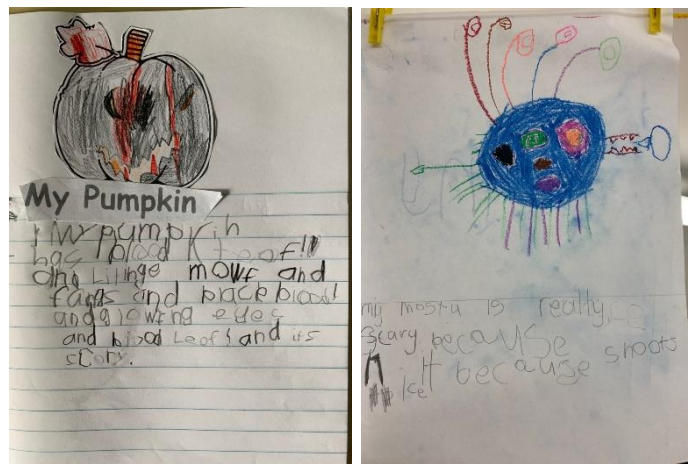 My Pumpkin
My pumpkin
has blood
and mowf and
fangs and black blood!
and glowing eyes
and blood Leafs and its
scary.
my mostu is really
scary because
it because shoots
ice